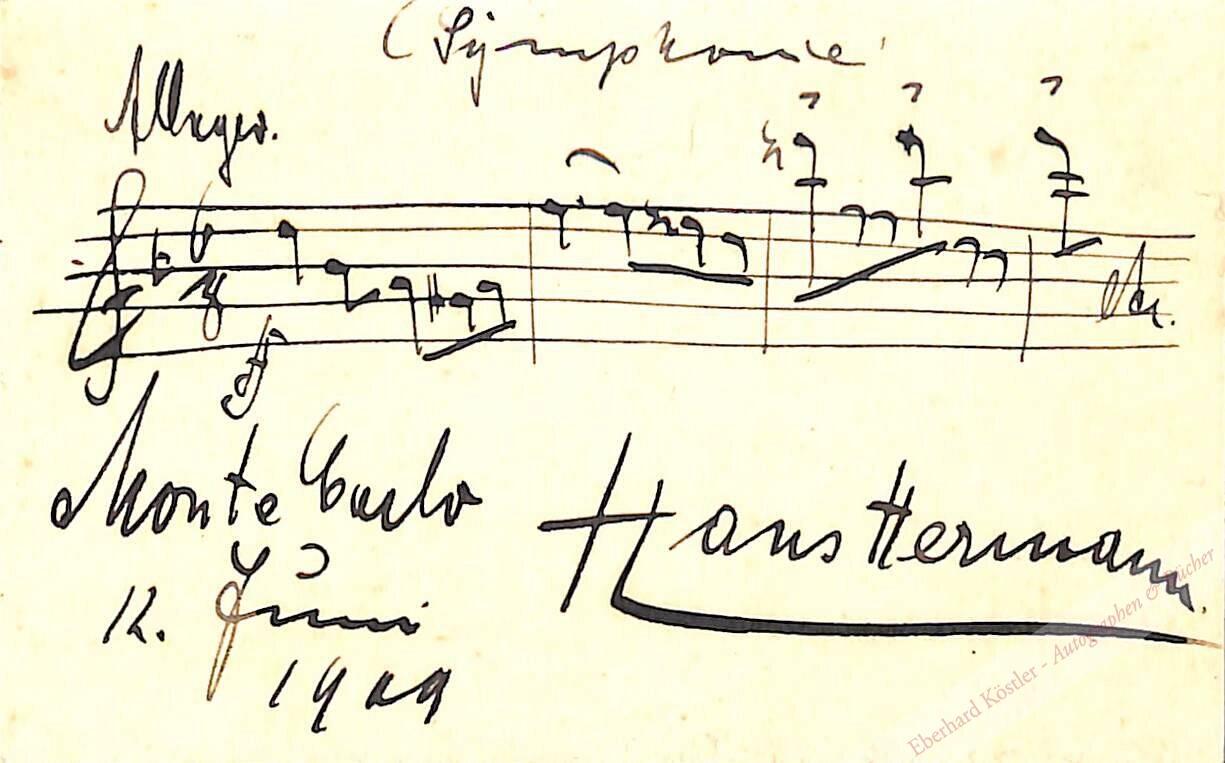 (Symphonie)
Allegro.
Monte Carlo
12. Juni
1909
Hans Hermann.
Eberhard Köstler - Autographen & Bücher